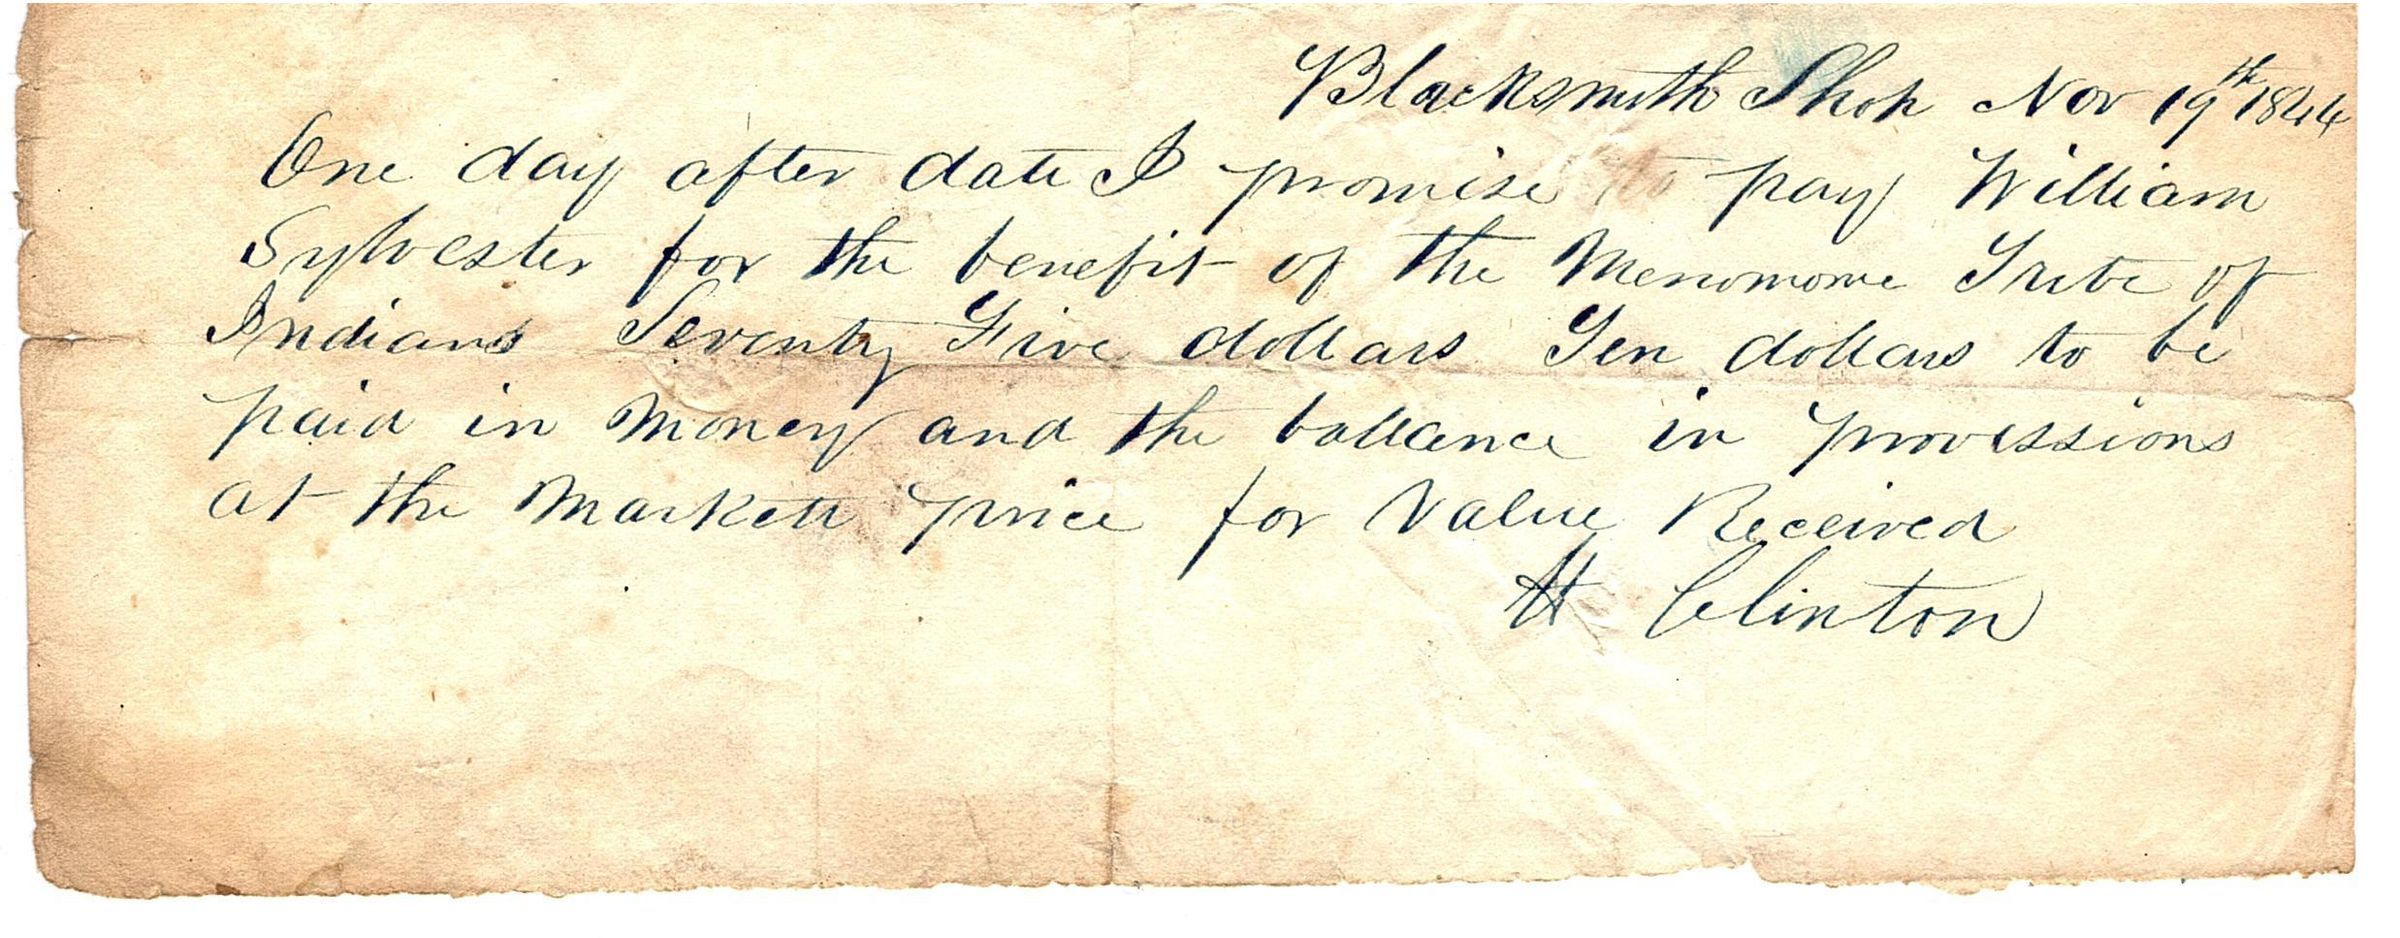 Blacksmith Shop Nov 19th 1844
One day after date I promise to pay William
Sylvester for the benefit of the Menomonie Tribe of
Indians Seventy Five dollars Ten dollars to be
paid in money and the ballance in provissions
at the Markett price for Value Received
H Clinton